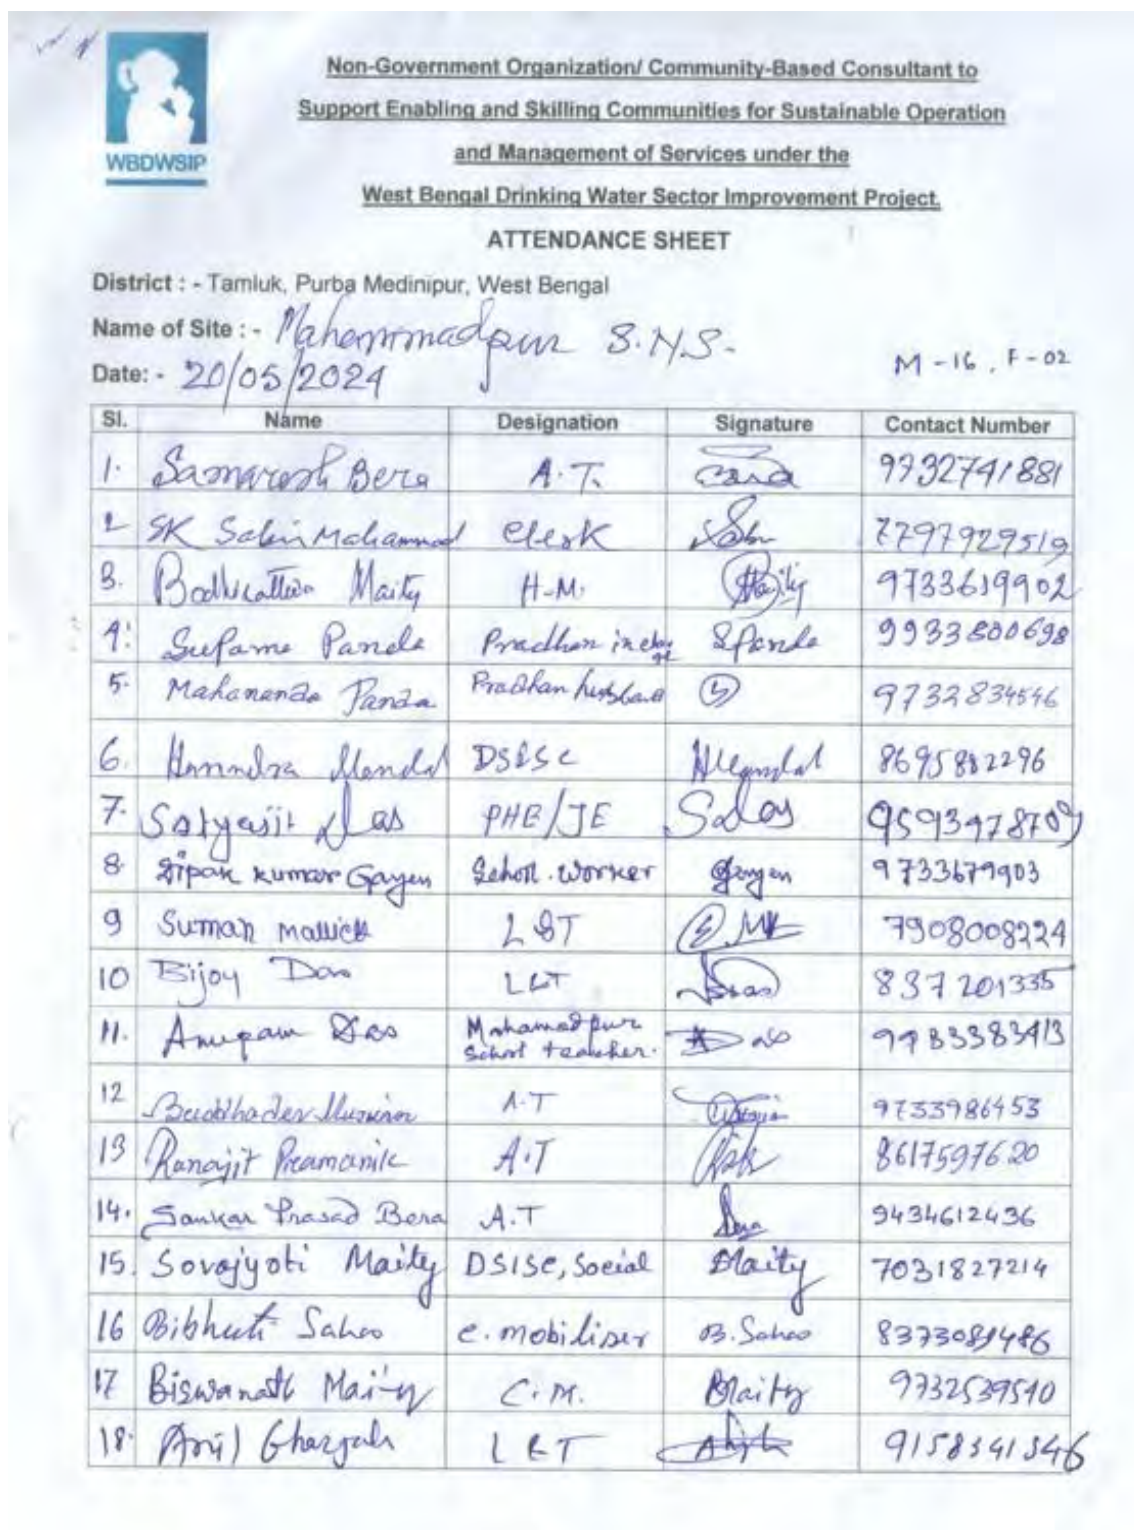 WBDWSIP
Non-Government Organization/ Community-Based Consultant to
Support Enabling and Skilling Communities for Sustainable Operation
and Management of Services under the
West Bengal Drinking Water Sector Improvement Project.
ATTENDANCE SHEET
District : - Tamluk, Purba Medinipur, West Bengal
Name of Site : - Mahammadpur S.H.S.
Date: - 20/05/2024
M - 16 , F - 02
Sl. Name Designation Signature Contact Number
1. Samaresh Bera A.T. 9732741881
2 SK Sabir Mahammad Clerk 7797929519
3. Bodhisattwa Maity H.M. Maity 9733619902
4. Panda Pradhan in charge SPanda 9933800698
5. Mahananda Panda Pradhan husband 9732834546
6. Mandal DSISC Mandal 8695882296
7. Satyajit Das PHE/JE SDas 9593978709
8 Dipak Kumar Gayen School. Worker Gayen 9733679903
9 Suman Mallick L&T 7908008224
10 Bijoy Das L&T Das 837201335
11. Anupam Das Mahamadpur School teacher. Das 9983383413
12 Buddhadev A.T 9733986453
13 Ranajit Pramanik A.T 8617597620
14. Sankar Prasad Bera A.T Bera 9434612436
15. Sovajyoti Maity DSISC, Social Maity 7031827214
16 Bibhuti Sahoo C. mobiliser B. Sahoo 8373081486
17 Biswanath Maity C.M. BMaity 9732539510
18. L&T 9158341346